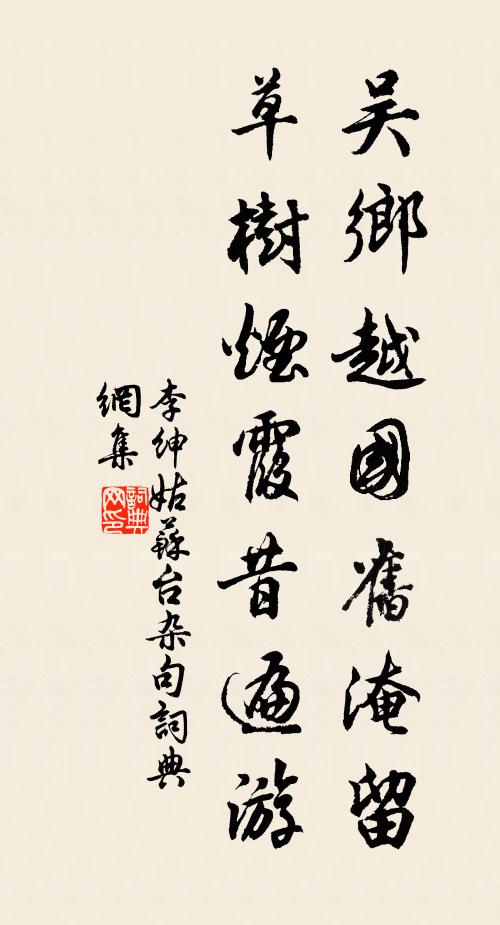 吴鄉越國舊淹留
草樹煙霞昔遍游
李紳姑蘇台杂句詞典
網集
詞典網印